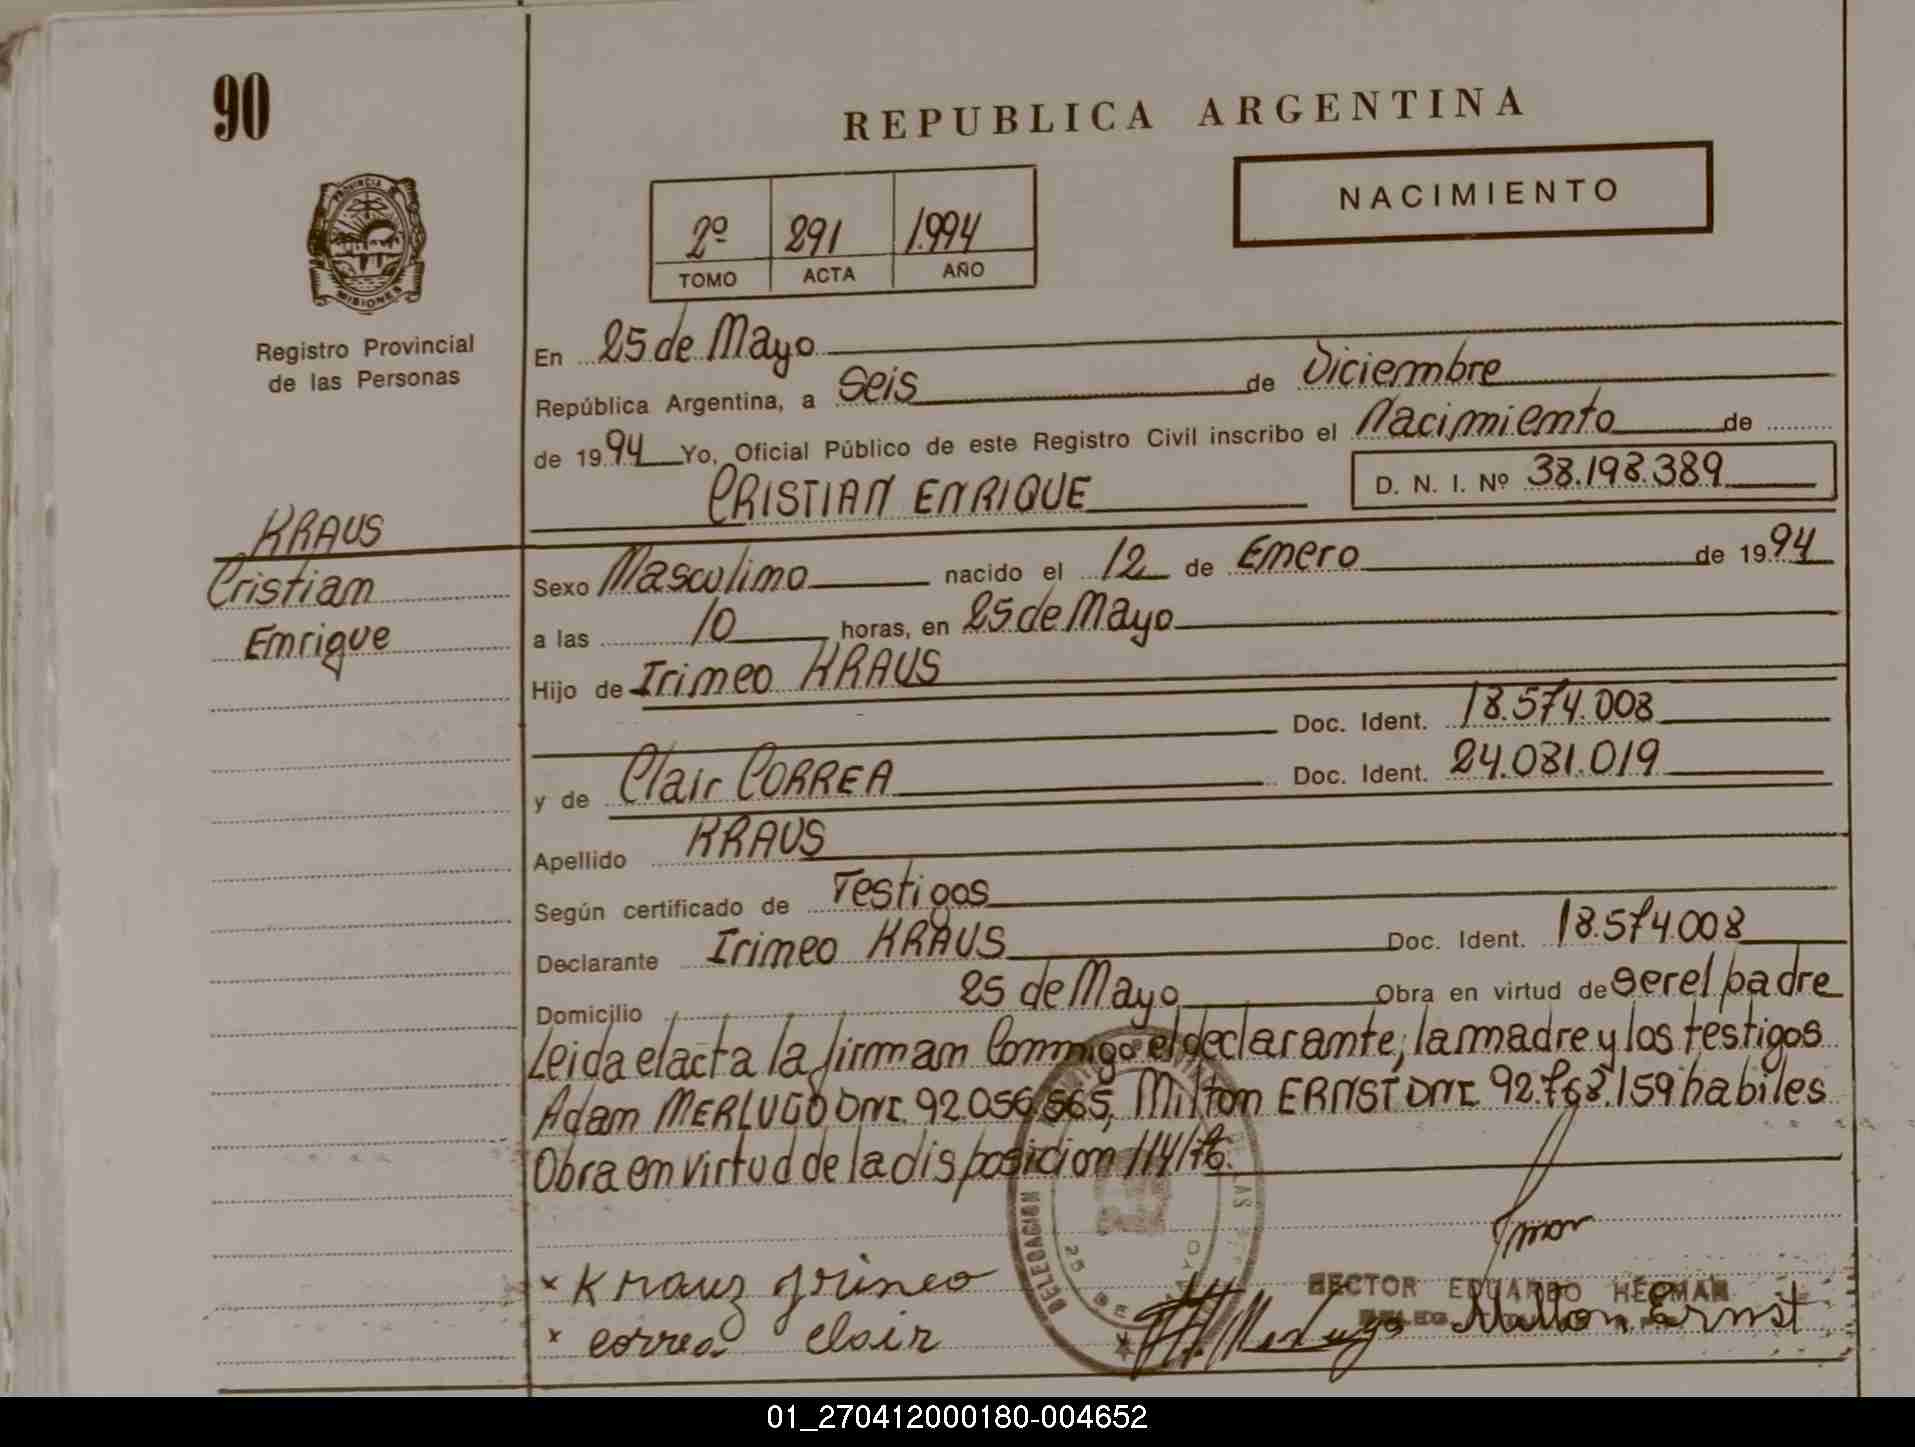 90
REPUBLICA ARGENTINA
NACIMIENTO
2º 291 1.994
TOMO ACTA AÑO
PROVINCIA DE
MISIONES
Registro Provincial
de las Personas
En 25 de Mayo
República Argentina, a Seis de Diciembre
de 1994 Yo, Oficial Público de este Registro Civil inscribo el Nacimiento de
CRISTIAN ENRIQUE D. N. I. Nº 38.198.389
KRAUS
Cristian
Enrique
Sexo Masculino nacido el 12 de Enero de 1994
a las 10 horas, en 25 de Mayo
Hijo de Irineo KRAUS
Doc. Ident. 18.574.008
y de Clair CORREA Doc. Ident. 24.081.019
Apellido KRAUS
Según certificado de Testigos
Declarante Irineo KRAUS Doc. Ident. 18.574.008
Domicilio 25 de Mayo Obra en virtud de ser el padre
Leida el acta la firman Conmigo el declarante, la madre y los testigos
Adam MERLUGO DNI. 92.056.565, Milton ERNST DNI. 92.768.159 habiles
Obra en virtud de la disposicion 114/76.
DELEGACION
25 DE MAYO
x Krauz Jrineo
x correa clair
HECTOR EDUARDO HEDMAN
Milton Ernst
01_270412000180-004652